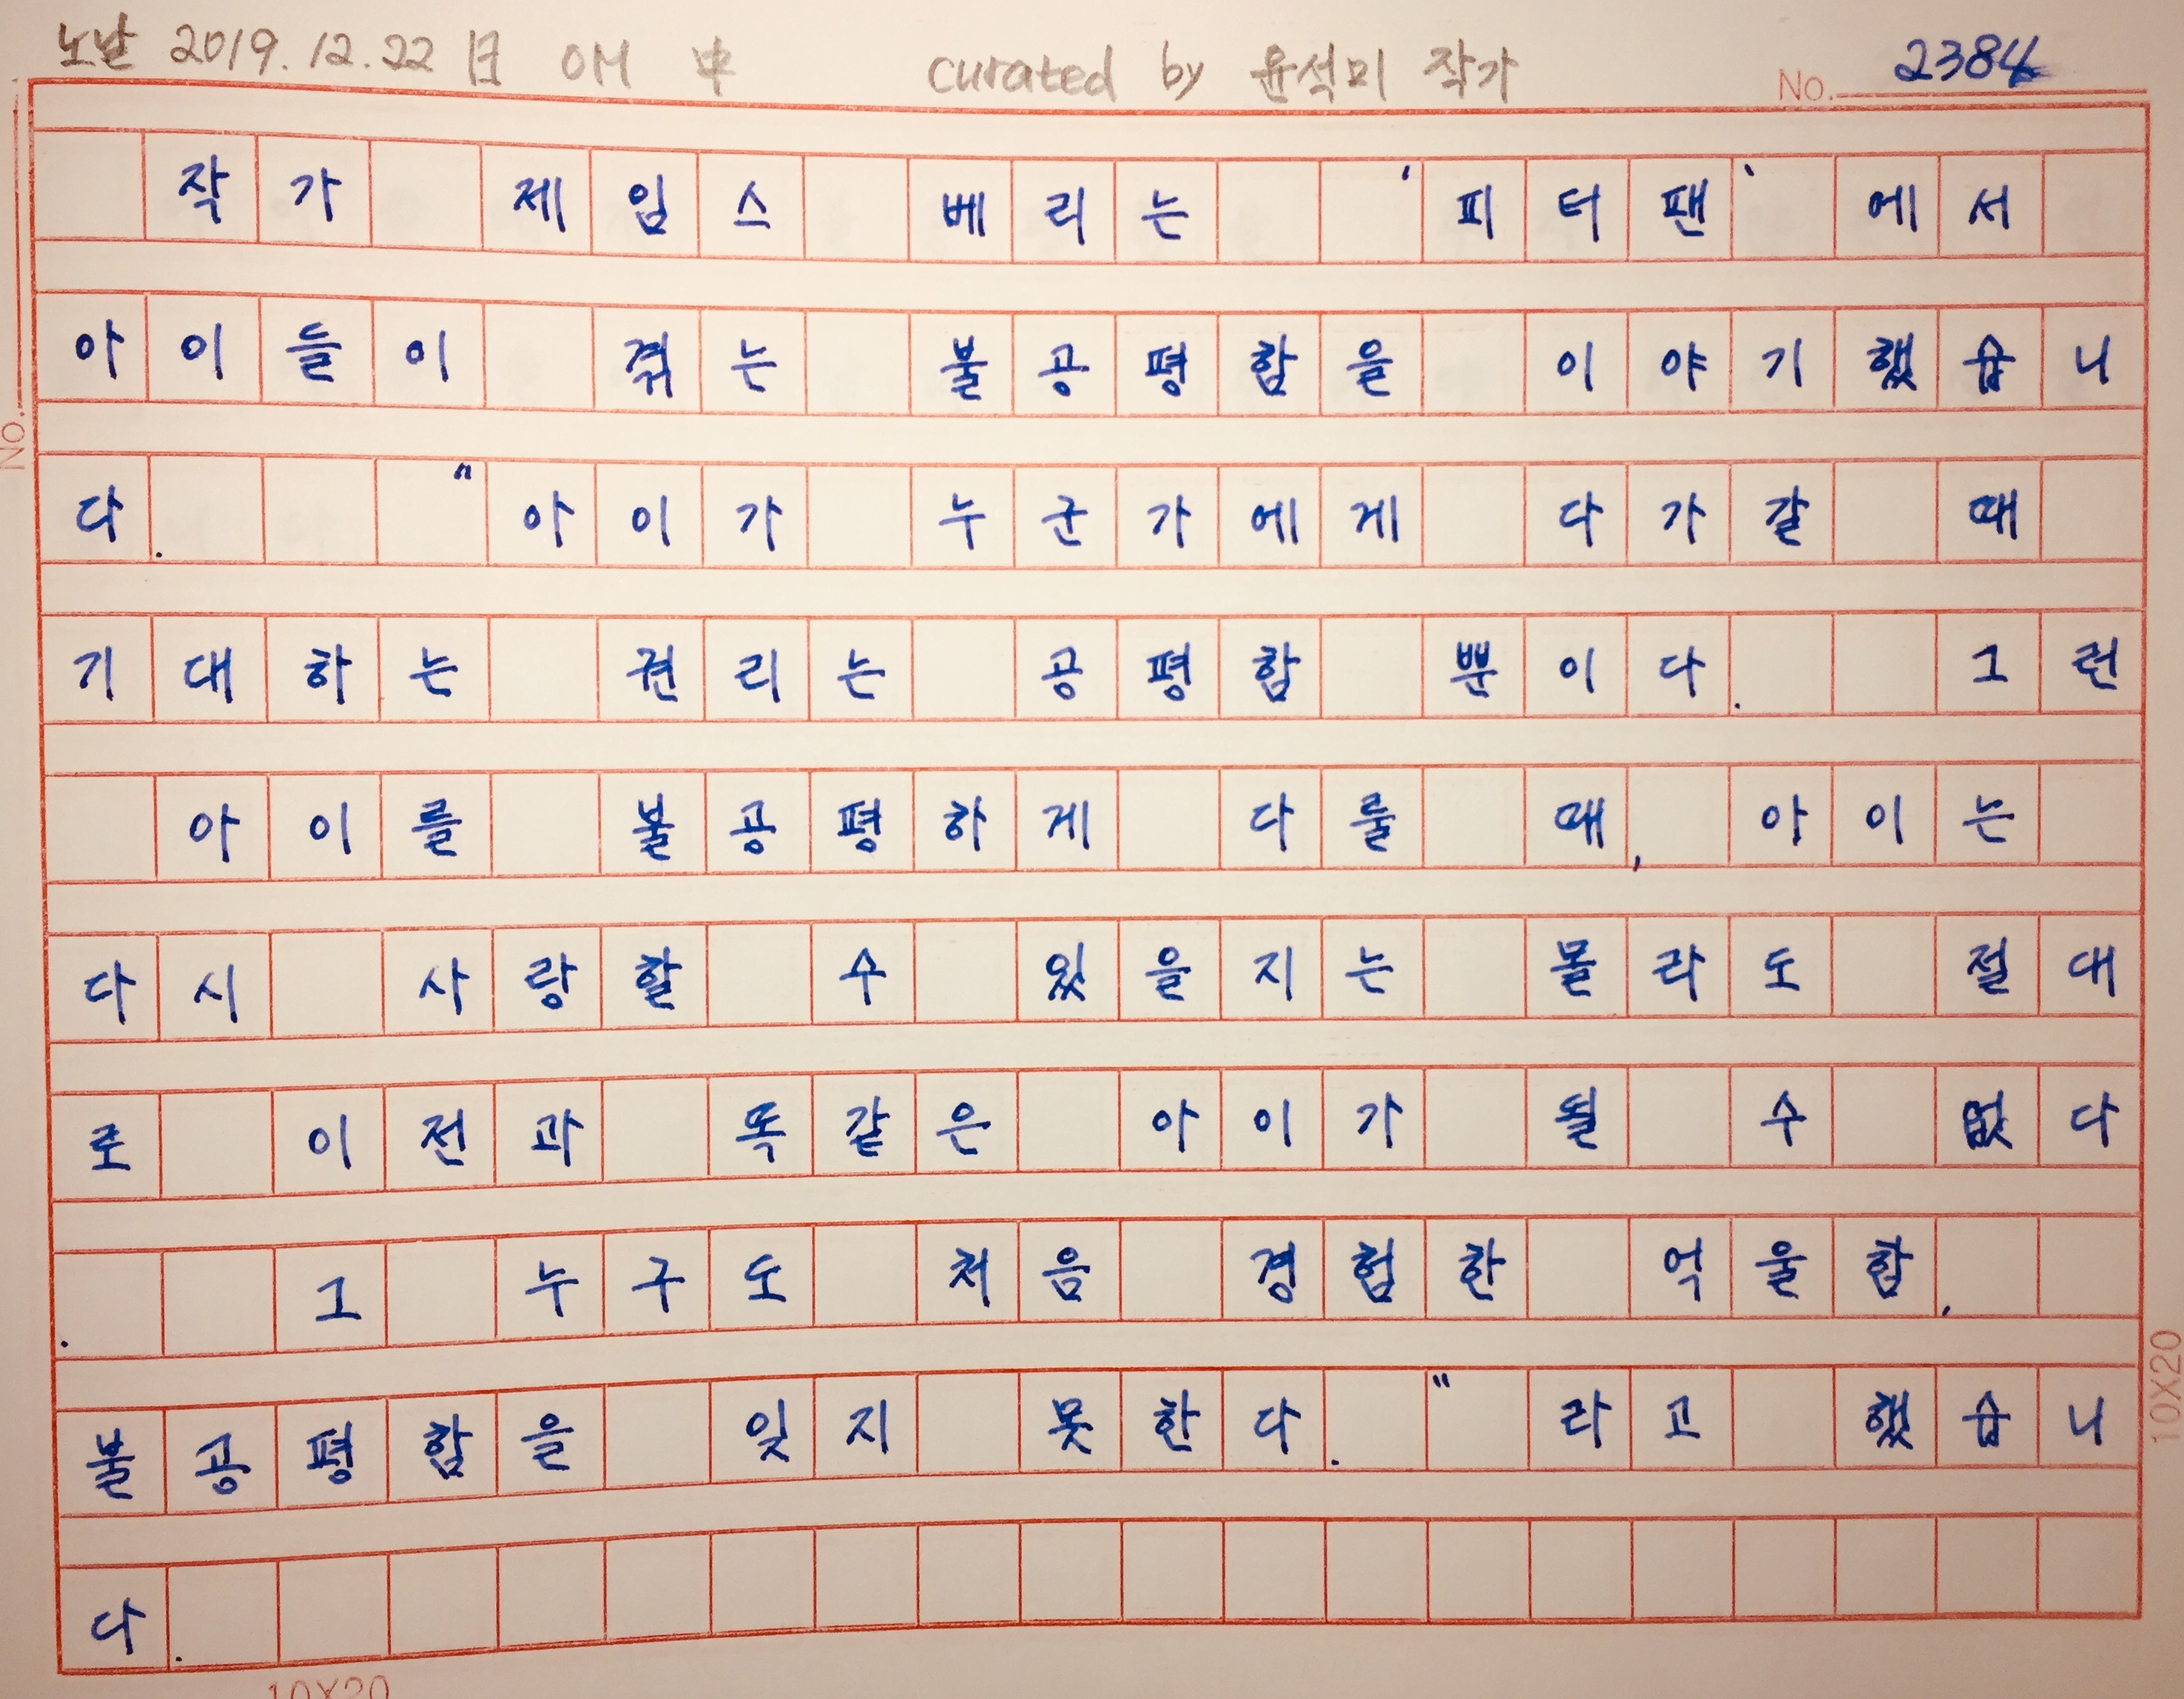 노날 2019.12.22 日 OM 中 curated by 윤석미 작가 No. 2384
작가 제임스 베리는 '피터팬'에서
아이들이 겪는 불공평함을 이야기했습니
다. "아이가 누군가에게 다가갈 때
기대하는 권리는 공평함 뿐이다. 그런
아이를 불공평하게 다룰 때, 아이는
다시 사랑할 수 있을지는 몰라도 절대
로 이전과 똑같은 아이가 될 수 없다
. 그 누구도 처음 경험한 억울함,
불공평함을 잊지 못한다." 라고 했습니
다.
No.
10X20
10X20